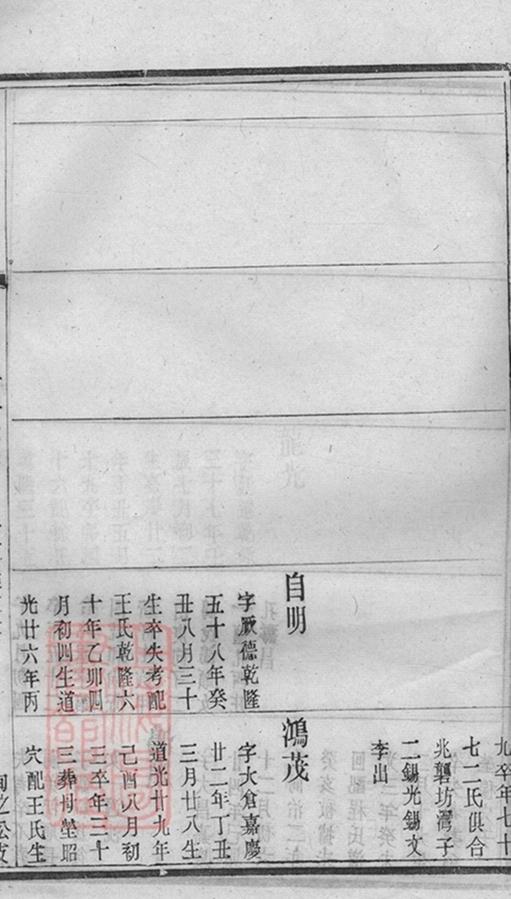 九卒年七十
七二氏俱合
兆龔坊灣子
二錫光錫文
李出
自明
字厥德乾隆
五十八年癸
丑八月三十
生卒失考配
王氏乾隆六
十年乙卯四
月初四生道
光廿六年丙
鴻茂
字大倉嘉慶
廿二年丁丑
三月廿八生
道光廿九年
己酉八月初
三卒年三十
三葬母塋昭
穴配王氏生